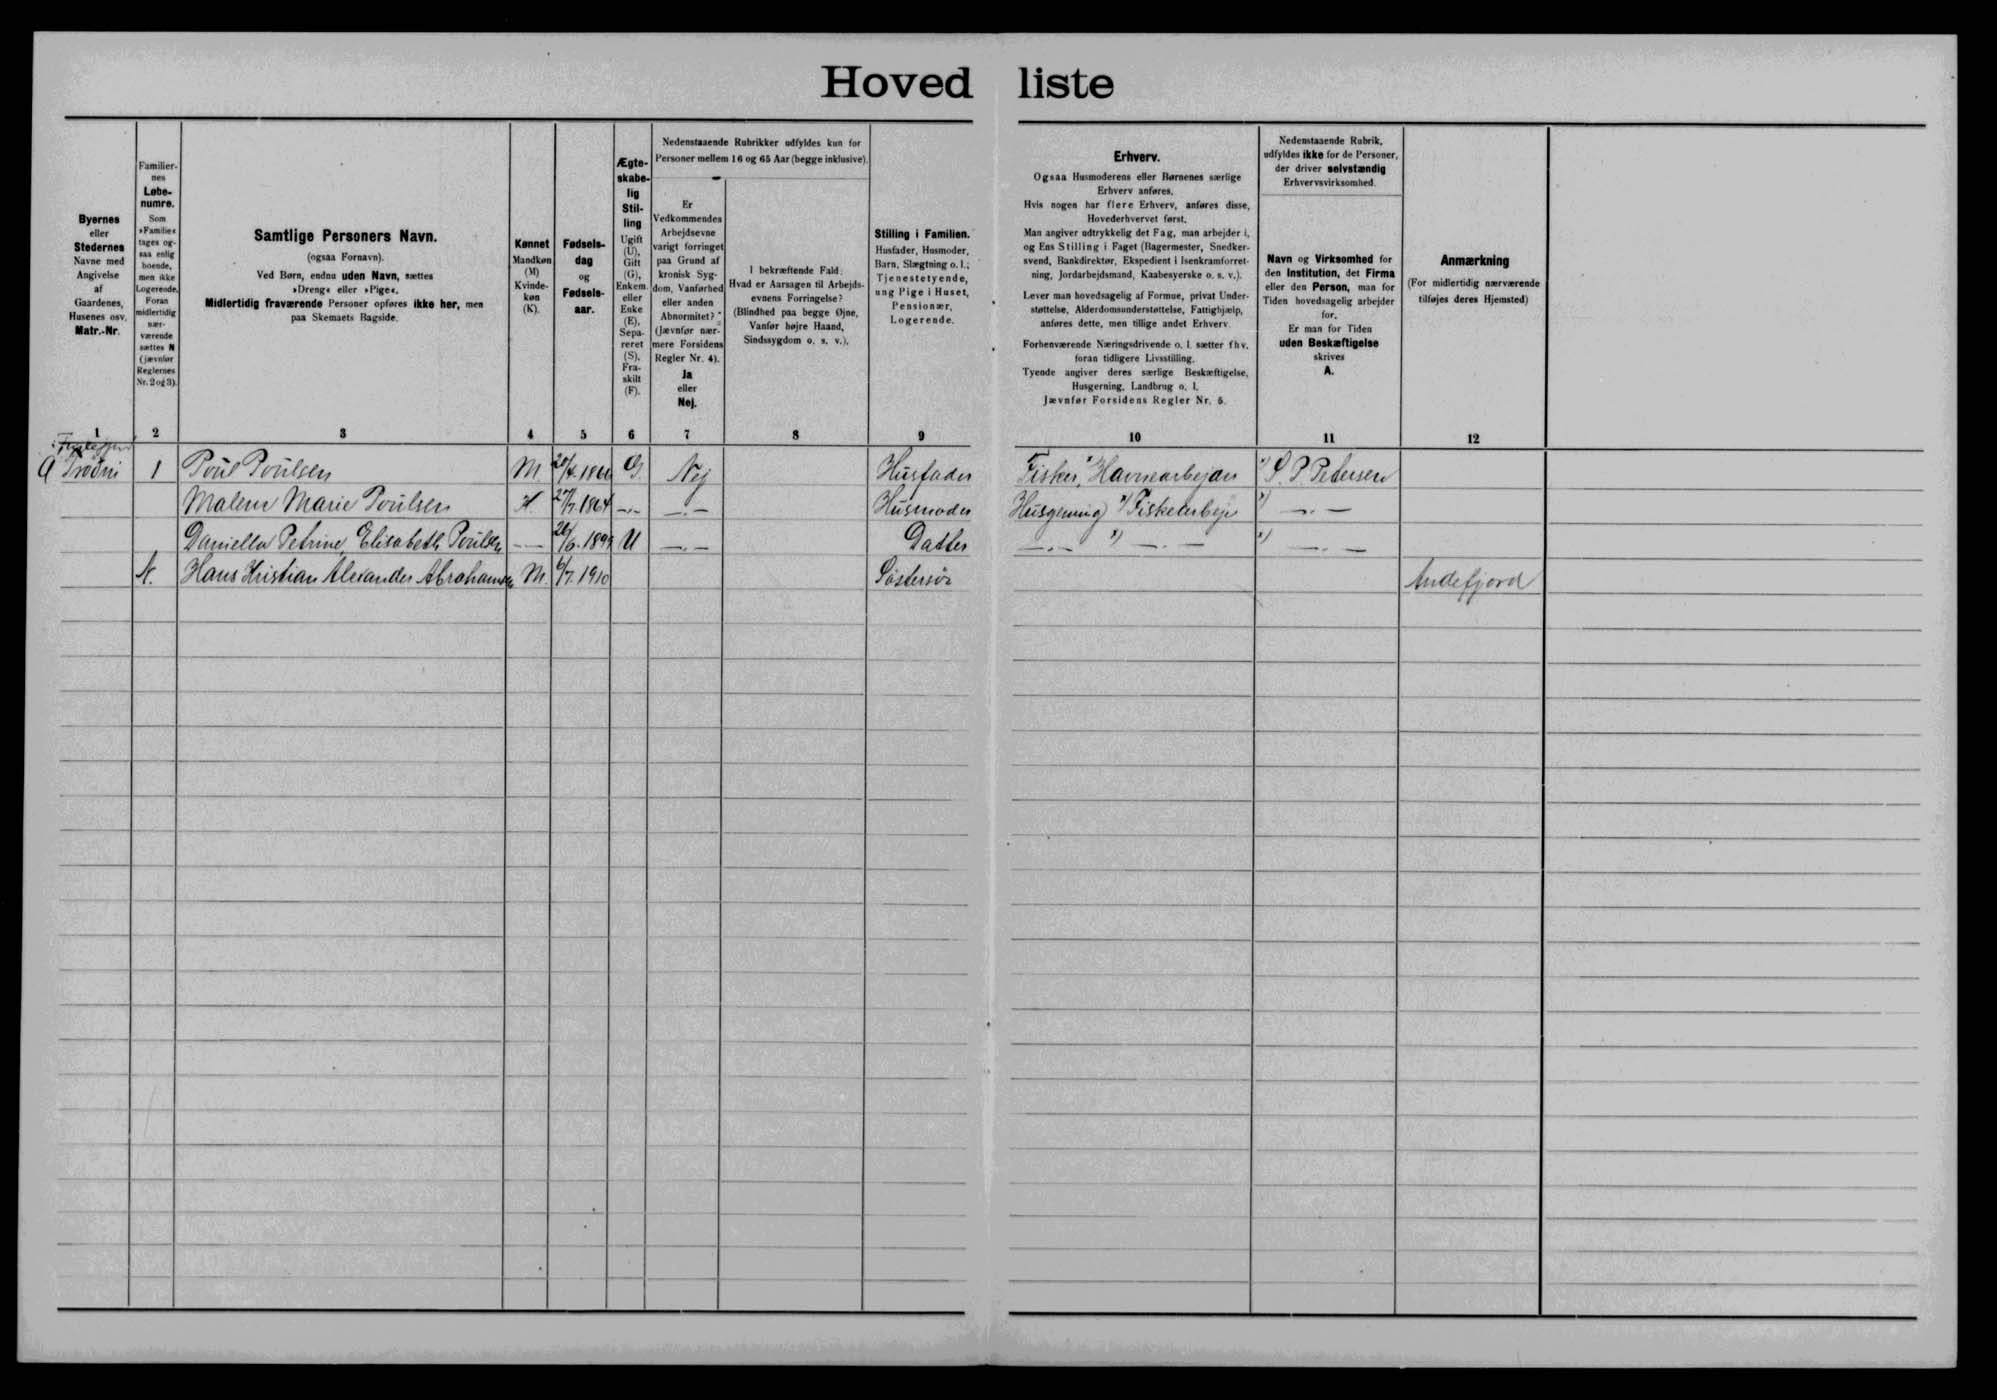 Hovedliste
Byernes
eller
Stedernes
Navne med
Angivelse
af
Gaardenes,
Husenes osv.
Matr.-Nr.
Familier-
nes
Løbe-
numre.
Som
»Familie«
tages og-
saa enlig
boende,
men ikke
Logerende.
Foran
midlertidig
nær-
værende
sættes N
(jævnfør
Reglernes
Nr. 2 og 3).
Samtlige Personers Navn.
(ogsaa Fornavn).
Ved Børn, endnu uden Navn, sættes
»Dreng« eller »Pige«.
Midlertidig fraværende Personer opføres ikke her, men
paa Skemaets Bagside.
Kønnet
Mandkøn
(M)
Kvinde-
køn
(K).
Fødsels-
dag
og
Fødsels-
aar.
Ægte-
skabe-
lig
Stil-
ling
Ugift
(U),
Gift
(G),
Enkem.
eller
Enke
(E),
Sepa-
reret
(S),
Fra-
skilt
(F).
Nedenstaaende Rubrikker udfyldes kun for
Personer mellem 16 og 65 Aar (begge inklusive).
Er
Vedkommendes
Arbejdsevne
varigt forringet
paa Grund af
kronisk Syg-
dom, Vanførhed
eller anden
Abnormitet?
(Jævnfør nær-
mere Forsidens
Regler Nr. 4).
Ja
eller
Nej.
I bekræftende Fald:
Hvad er Aarsagen til Arbejds-
evnens Forringelse?
(Blindhed paa begge Øjne,
Vanfør højre Haand,
Sindssygdom o. s. v.).
Stilling i Familien.
Husfader, Husmoder,
Barn, Slægtning o. l.;
Tjenestetyende,
ung Pige i Huset,
Pensionær,
Logerende.
Erhverv.
Ogsaa Husmoderens eller Børnenes særlige
Erhverv anføres.
Hvis nogen har flere Erhverv, anføres disse,
Hovederhvervet først.
Man angiver udtrykkelig det Fag, man arbejder i,
og Ens Stilling i Faget (Bagermester, Snedker-
svend, Bankdirektør, Ekspedient i Isenkramforret-
ning, Jordarbejdsmand, Kaabesyerske o. s. v.).
Lever man hovedsagelig af Formue, privat Under-
støttelse, Alderdomsunderstøttelse, Fattighjælp,
anføres dette, men tillige andet Erhverv.
Forhenværende Næringsdrivende o. l. sætter fhv.
foran tidligere Livsstilling.
Tyende angiver deres særlige Beskæftigelse,
Husgerning, Landbrug o. l.
Jævnfør Forsidens Regler Nr. 5.
Nedenstaaende Rubrik,
udfyldes ikke for de Personer,
der driver selvstændig
Erhvervsvirksomhed.
Navn og Virksomhed for
den Institution, det Firma
eller den Person, man for
Tiden hovedsagelig arbejder
for.
Er man for Tiden
uden Beskæftigelse
skrives
A.
Anmærkning
(For midlertidig nærværende
tilføjes deres Hjemsted)
1 2 3 4 5 6 7 8 9 10 11 12
1 Poul Poulsen M. 20/4. 1866 G. Nej Husfader Fisker, Havnearbejder S. P. Petersen
Malene Marie Poulsen K. 27/7. 1864 —„— —„— Husmoder Husgerning Fiskearbejde —„—
Daniella Petrine Elisabeth Poulsen —„— U —„— Datter —„— —„— —„—
N. Hans Kristian Alexander Abrahamsen M. 6/7. 1910 Søstersøn Andefjord